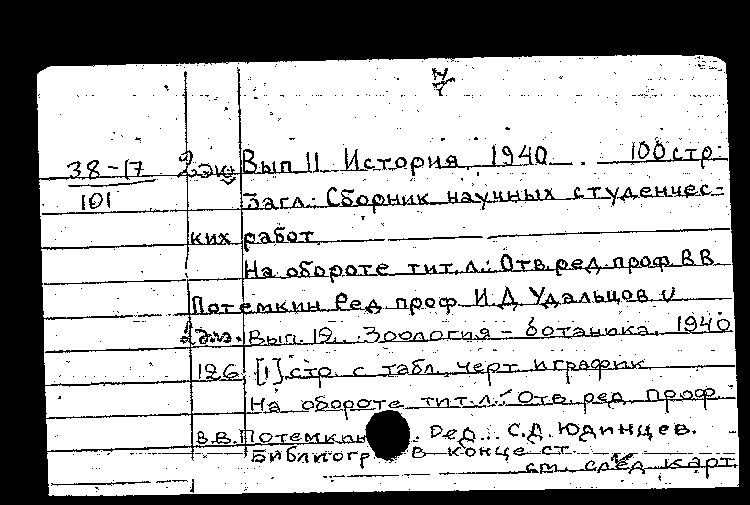 38-17 2 экз Вып 11 История 1940 . 100 стр.
101 Загл.: Сборник научных студенчес-
ких работ
На обороте тит.л.: Отв.ред.проф В В
Потемкин Ред проф И.Д Удальцов
1 экз. Вып. 12. Зоология - ботаника. 1940
126, [1] стр с табл, черт и график
На обороте тит.л.: Отв. ред. проф.
В.В. Потемкин. Ред.. С.Д. Юдинцев.
Библиогр в конце ст.
см. след карт.